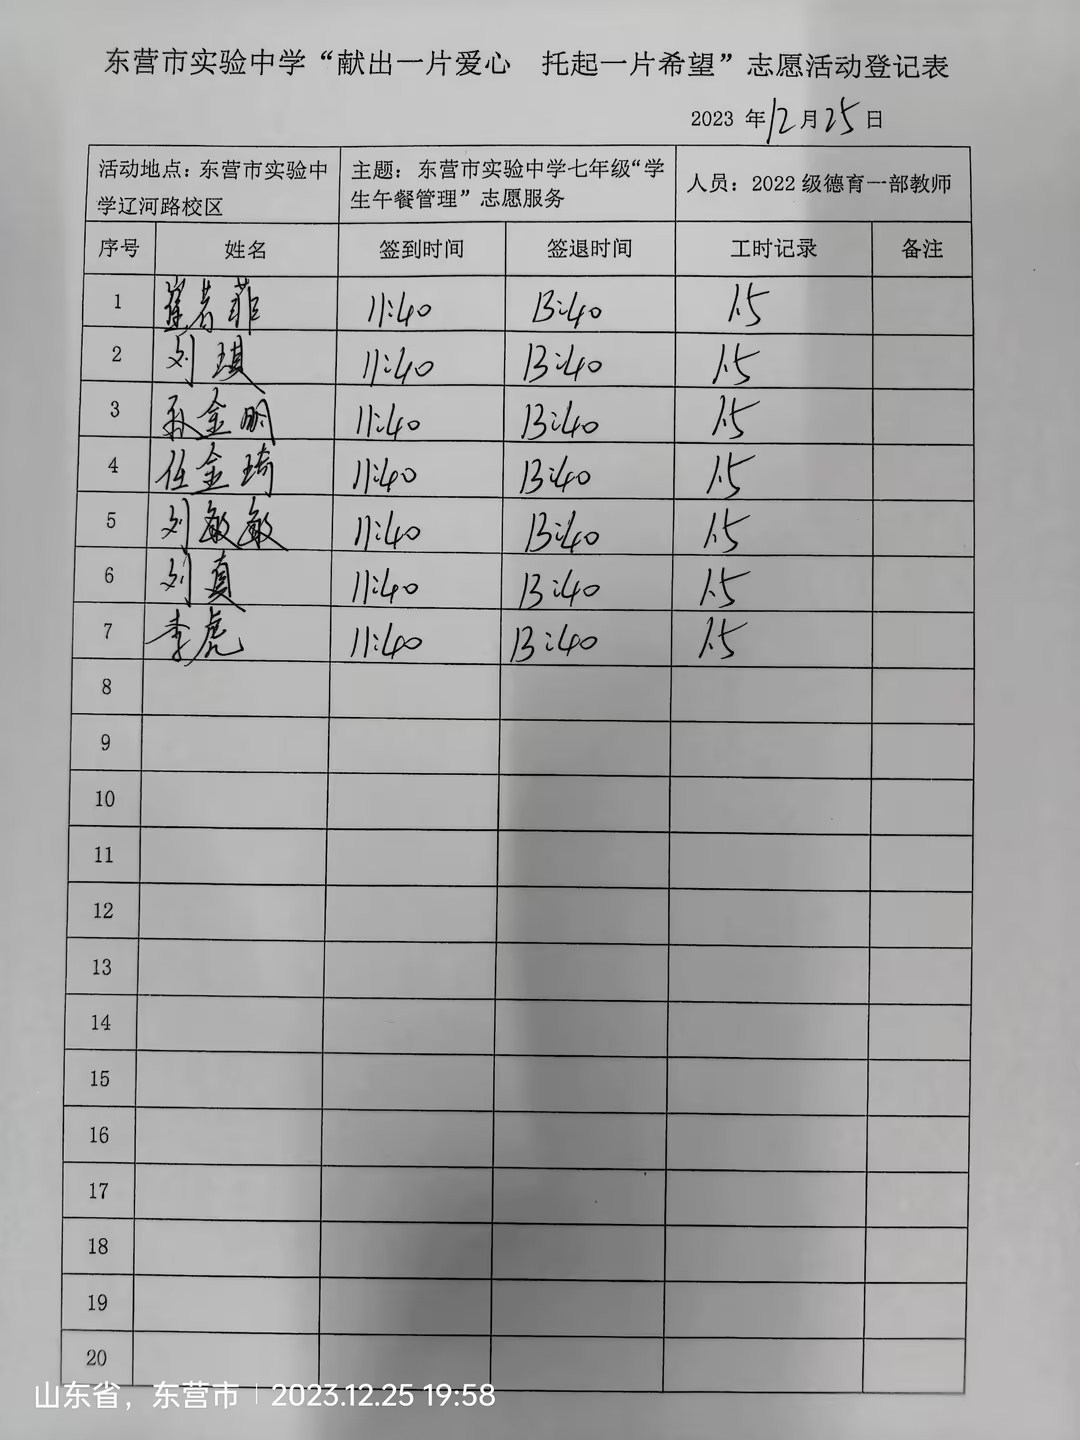 东营市实验中学“献出一片爱心 托起一片希望”志愿活动登记表
2023 年 12 月 25 日
活动地点：东营市实验中学辽河路校区 主题：东营市实验中学七年级“学生午餐管理”志愿服务 人员：2022 级德育一部教师
序号 姓名 签到时间 签退时间 工时记录 备注
1 崔者菲 11:40 13:40 1.5
2 刘琪 11:40 13:40 1.5
3 孙金明 11:40 13:40 1.5
4 任金琦 11:40 13:40 1.5
5 刘敏敏 11:40 13:40 1.5
6 刘真 11:40 13:40 1.5
7 李虎 11:40 13:40 1.5
8
9
10
11
12
13
14
15
16
17
18
19
20
山东省，东营市 | 2023.12.25 19:58